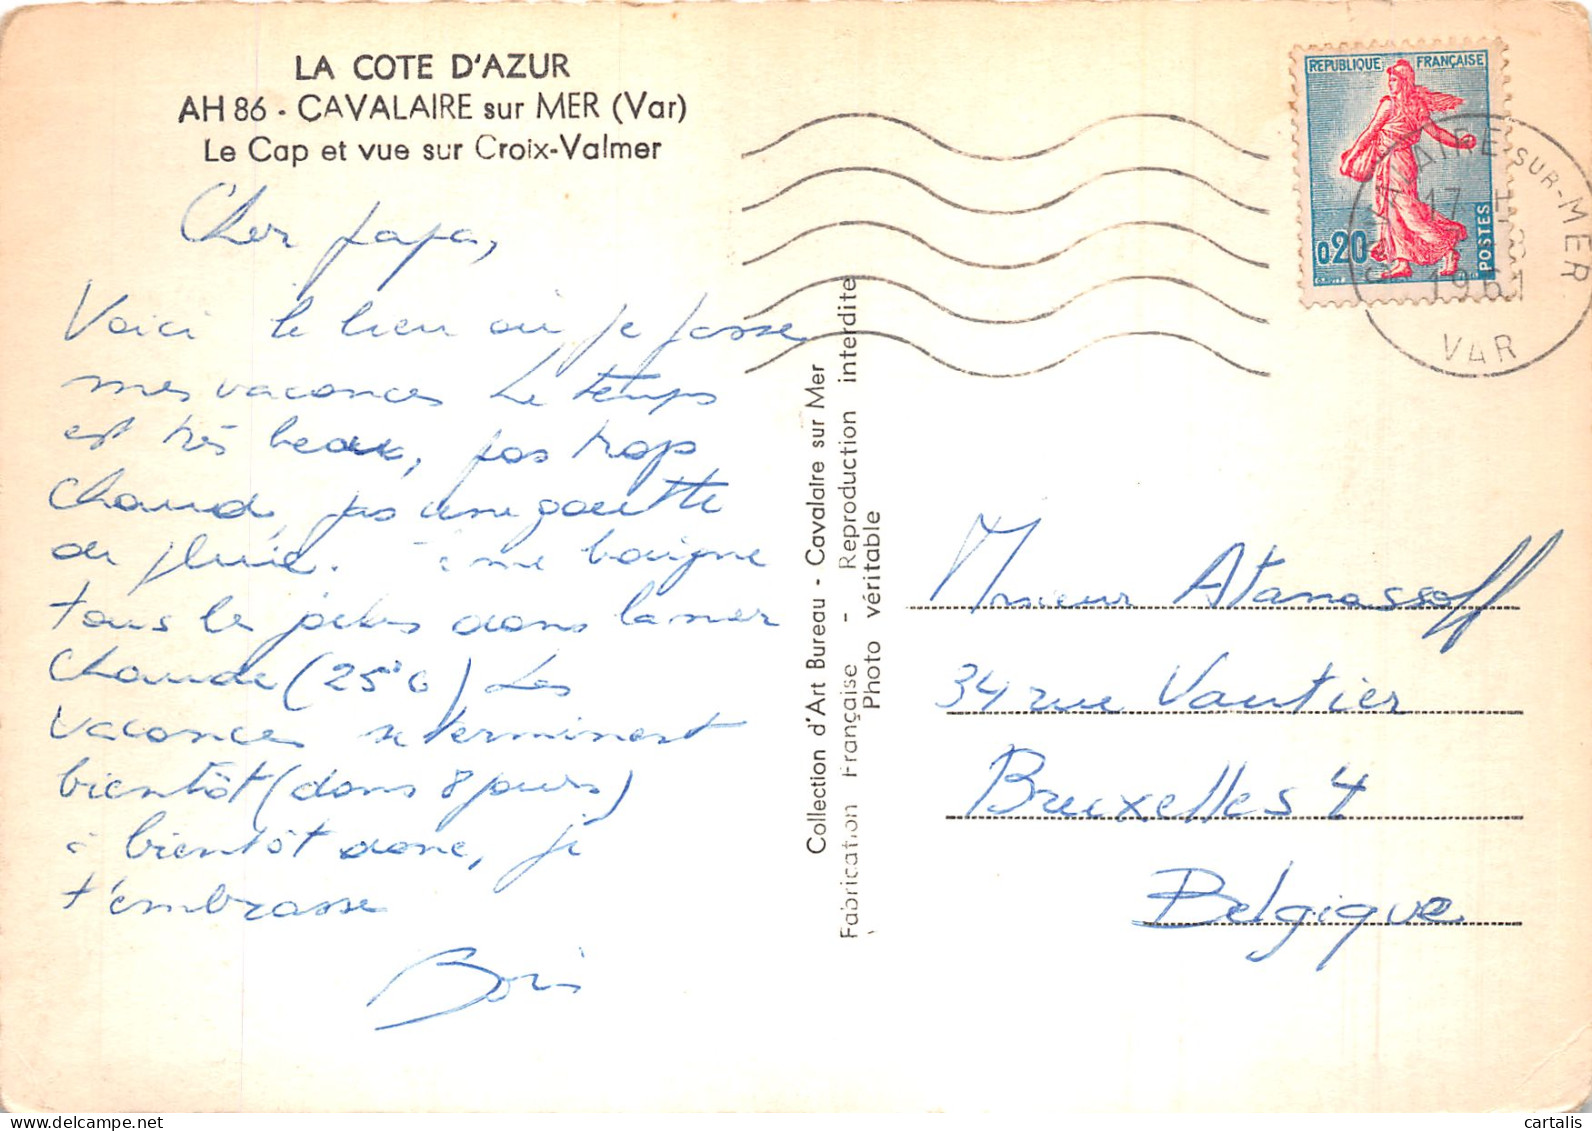 LA COTE D'AZUR
AH 86 - CAVALAIRE sur MER (Var)
Le Cap et vue sur Croix-Valmer
Cher papa,
Voici le lieu où je passe
mes vacances Le temps
est très beau, pas trop
chaud, pas une goutte
de pluie. me baigne
tous les jours dans la mer
chaude (25°C) Les
vacances se terminent
bientôt (dans 8 jours)
à bientôt donc, je
t'embrasse
Boris
Collection d'Art Bureau - Cavalaire sur Mer
Fabrication Française - Reproduction interdite
Photo véritable
REPUBLIQUE FRANÇAISE
0,20
POSTES
CAVALAIRE-SUR-MER
17
1961
VAR
Monsieur Atanassoff
34 rue Vautier
Bruxelles 4
Belgique
delcampe.net
cartalis